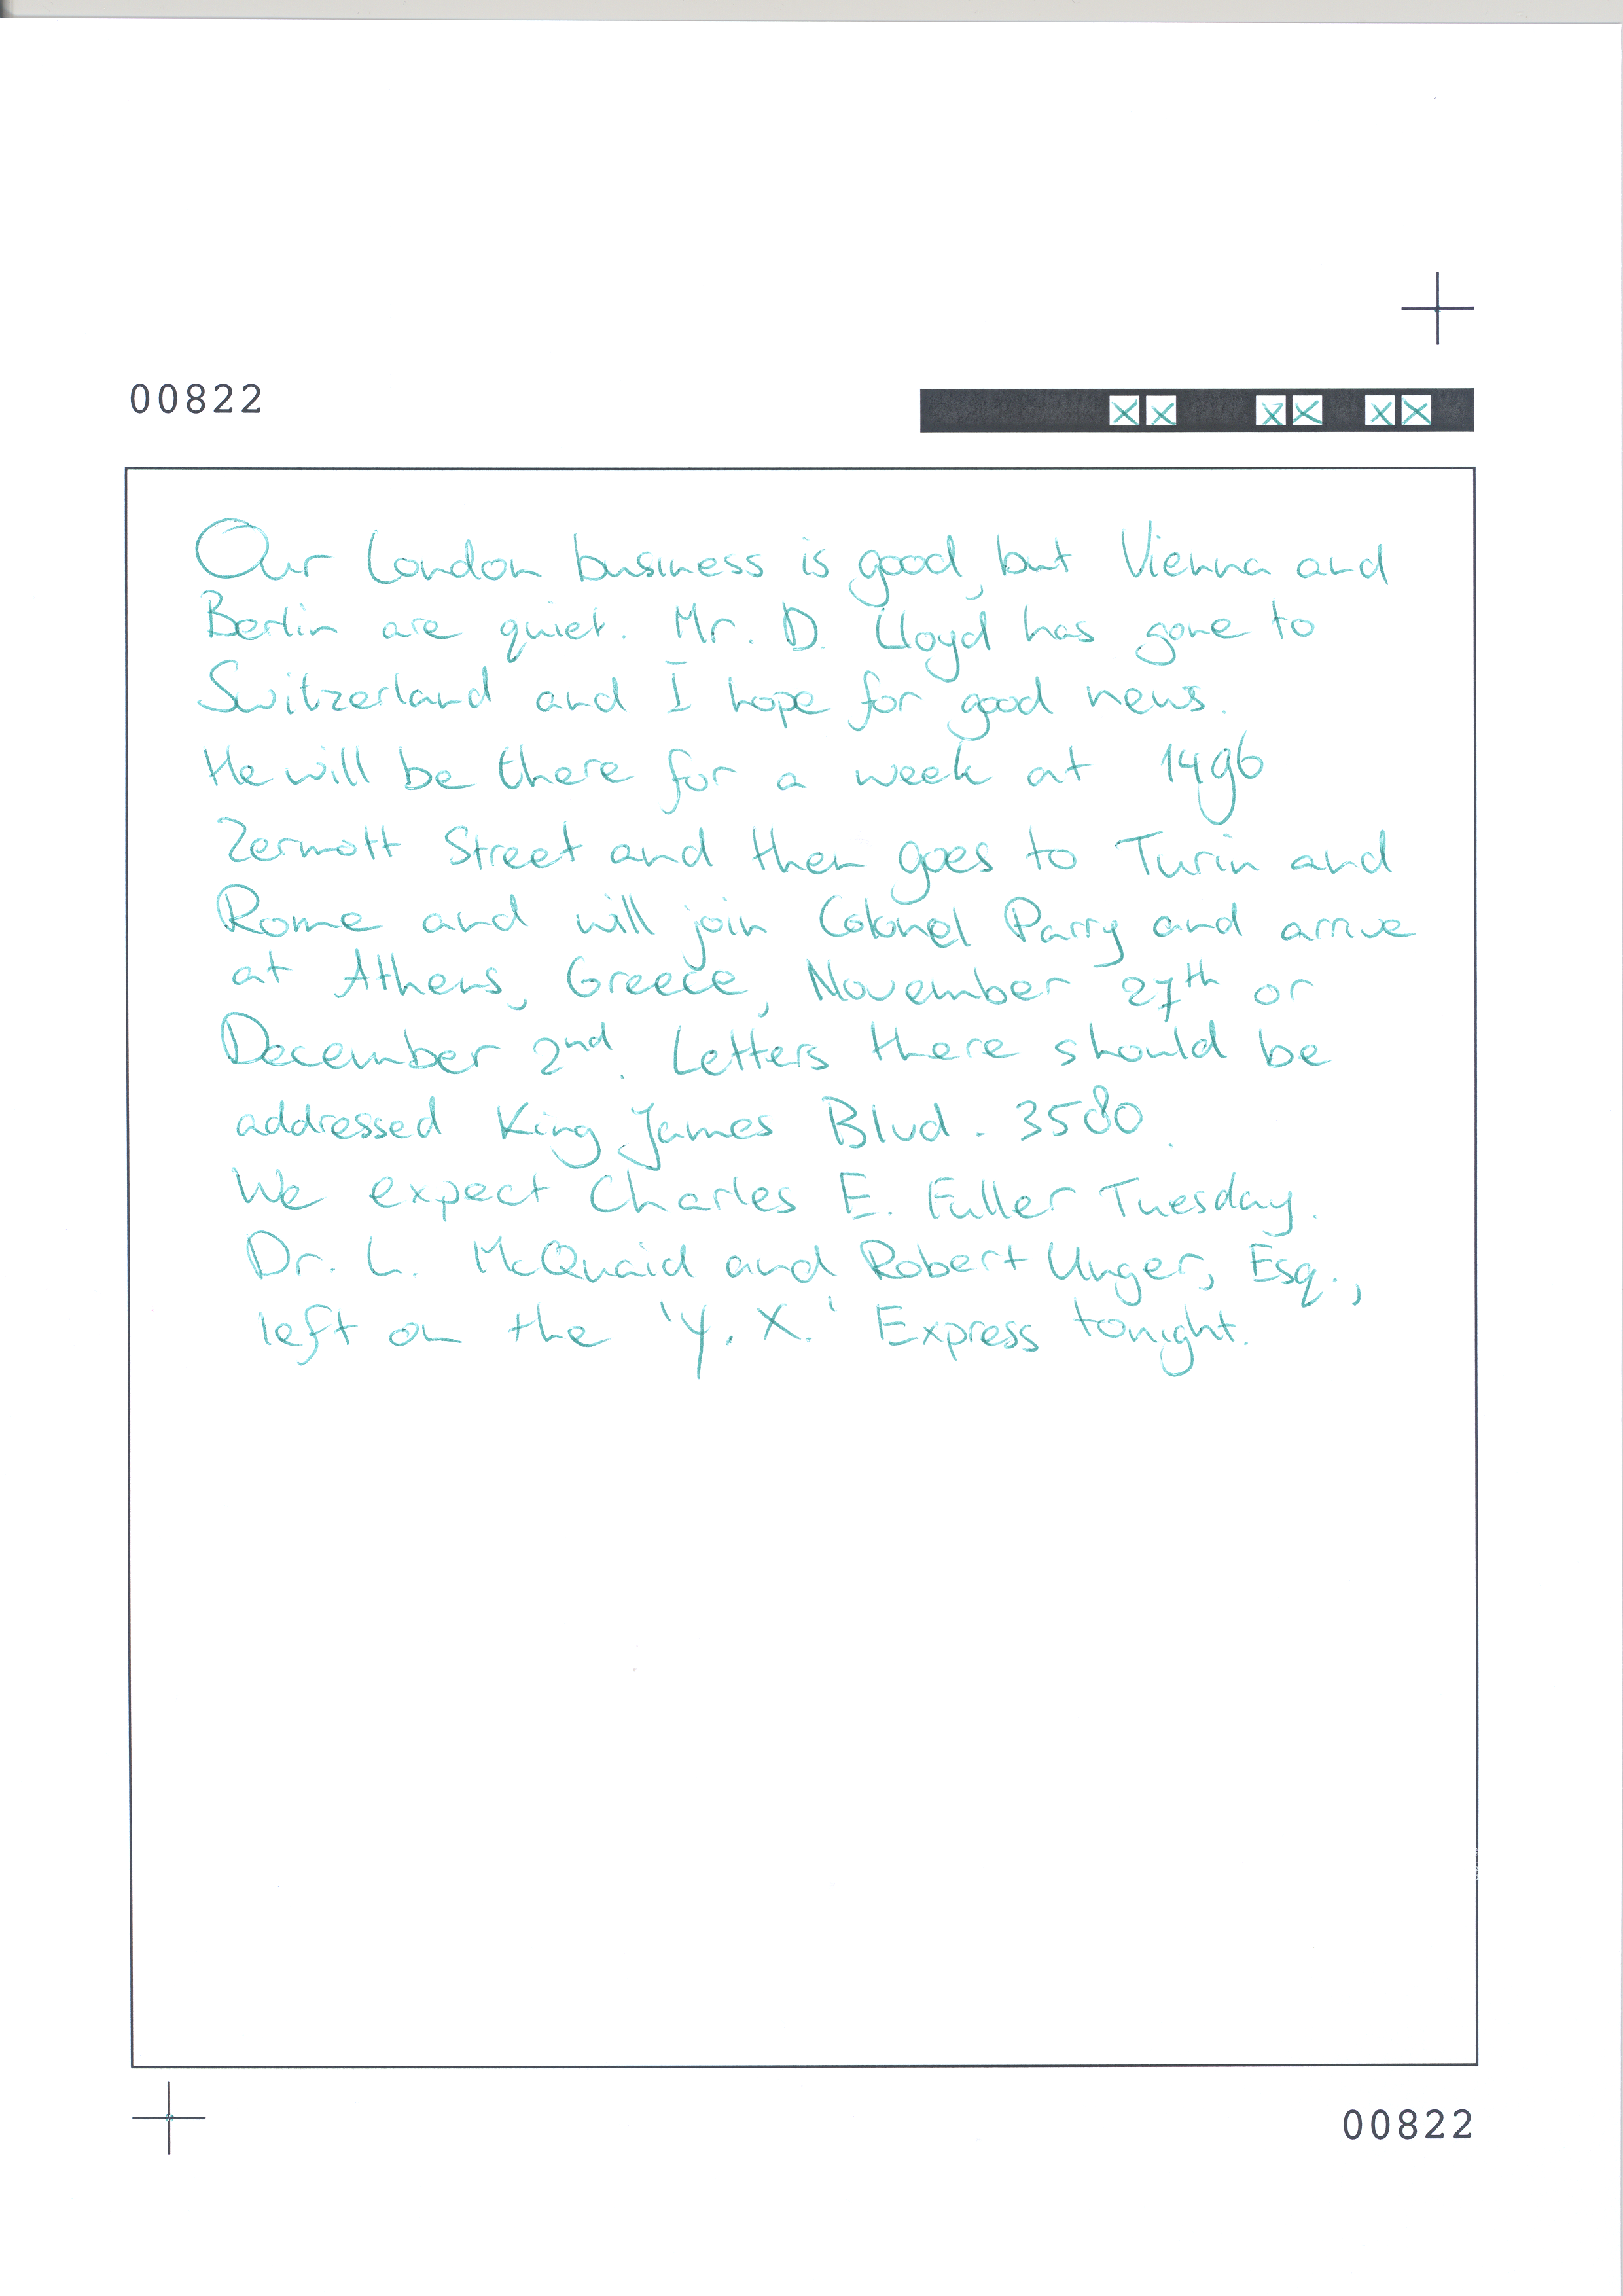 00822
Our London business is good, but Vienna and
Berlin are quiet. Mr. D. Lloyd has gone to
Switzerland and I hope for good news.
He will be there for a week at 1496
Zermott Street and then goes to Turin and
Rome and will join Colonel Parry and arrive
at Athens, Greece, November 27th or
December 2nd. Letters there should be
addressed King James Blvd. 3580.
We expect Charles E. Fuller Tuesday.
Dr. L. McQuaid and Robert Unger, Esq.,
left on the 'Y. X.' Express tonight.
00822